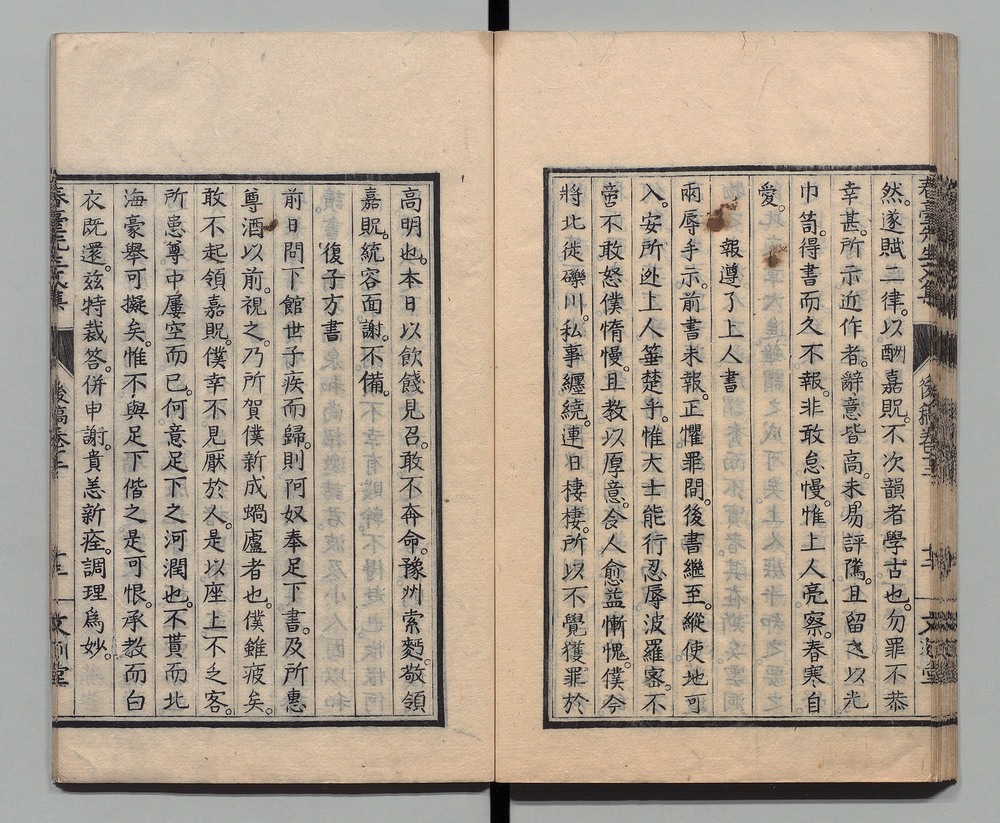 然。遂賦二律。以酬嘉貺。不次韻者學古也。勿罪不恭
幸甚。所示近作者。辭意皆高。未易評騭。且留之以光
巾笥。得書而久不報。非敢怠慢。惟上人亮察。春寒自
愛。
報導了上人書
兩辱手示。前書未報。正懼罪間。後書繼至。縱使地可
入。安所迯上人箠楚乎。惟大士能行忍辱波羅密。不
啻不敢怒僕惰慢。且教以厚意。令人愈益慚愧。僕今
將北徙礫川。私事纏繞。連日棲棲。所以不覺獲罪於
高明也。本日以飲餞見召。敢不奔命。豫州索麪。敬領
嘉貺。統容面謝。不備。
復子方書
前日問下館世子疾而歸。則阿奴奉足下書。及所惠
尊酒以前。視之。乃所賀僕新成蝸廬者也。僕雖疲矣。
敢不起領嘉貺。僕幸不見厭於人。是以座上不乏客。
所患尊中屢空而已。何意足下之河潤也。不貰而北
海豪舉可擬矣。惟不與足下偕之是可恨。承教而白
衣既還。茲特裁答。併申謝。貴恙新痊。調理爲妙。
春臺先生文集
後稿卷十三